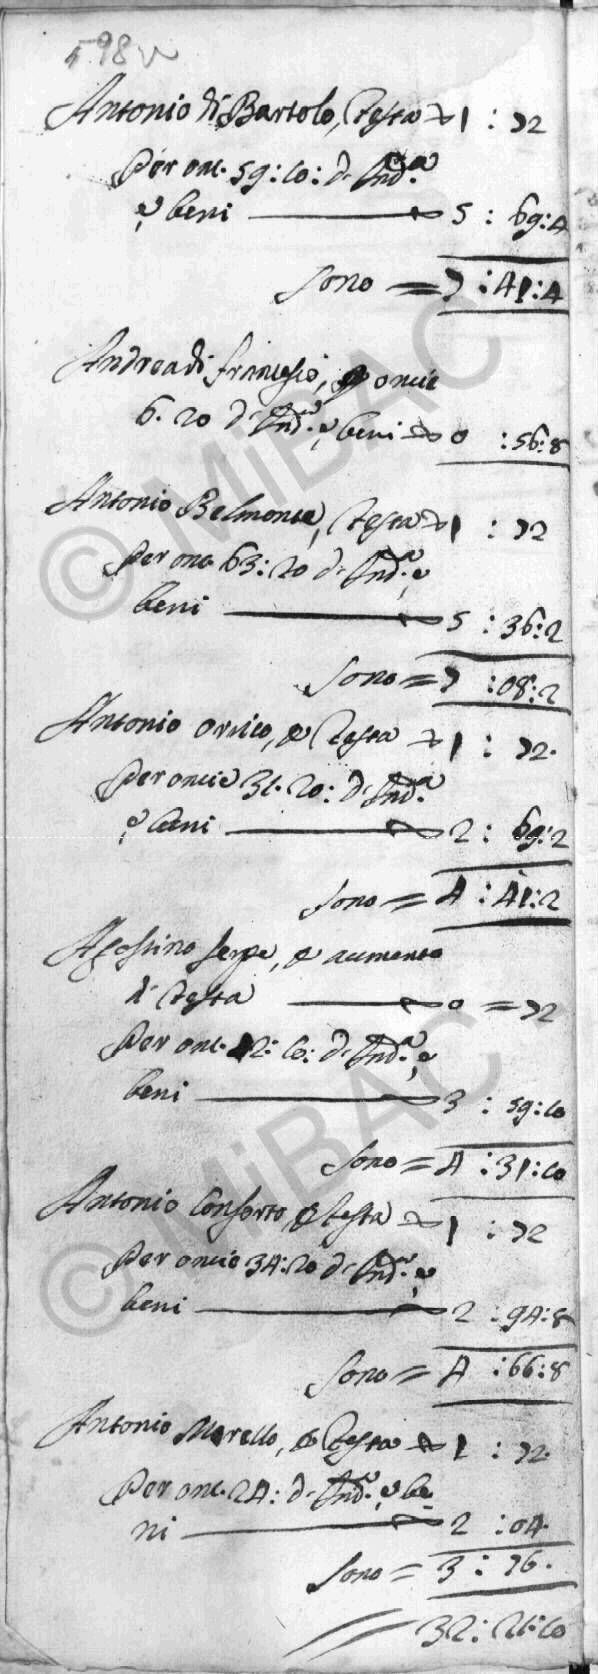 598v
Antonio di Bartolo, Testa 1 : 72
Per onc. 59:10: d'Ind.ª
e beni 5 : 69:4
Sono = 7 : 41:4
Andrea di Francesco, p oncie
6. 20 d'Ind.ª e beni 0 : 56:8
Antonio Belmonte, Testa 1 : 72
Per onc 63:20 d'Ind.ª e
beni 5 : 36:2
Sono = 7 : 08:2
Antonio , p Testa 1 : 72.
Per oncie 31. 20: d'Ind.ª
e beni 2 : 69:2
Sono = 4 : 41:2
Agostino Serpe, p aumento
di Testa 0 = 72
Per onc. 42: 10: d'Ind.ª e
beni 3 : 59:10
Sono = 4 : 31:10
Antonio Conforto, p Testa 1 : 72
Per oncie 34:20 d'Ind.ª e
beni 2 : 94:8
Sono = 4 : 66:8
Antonio Morello, p Testa 1 : 72.
Per onc. 24: d'Ind.ª e be
ni 2 : 04.
Sono = 3 : 76.
32 : 21:10
© MiBAC
© MiBAC